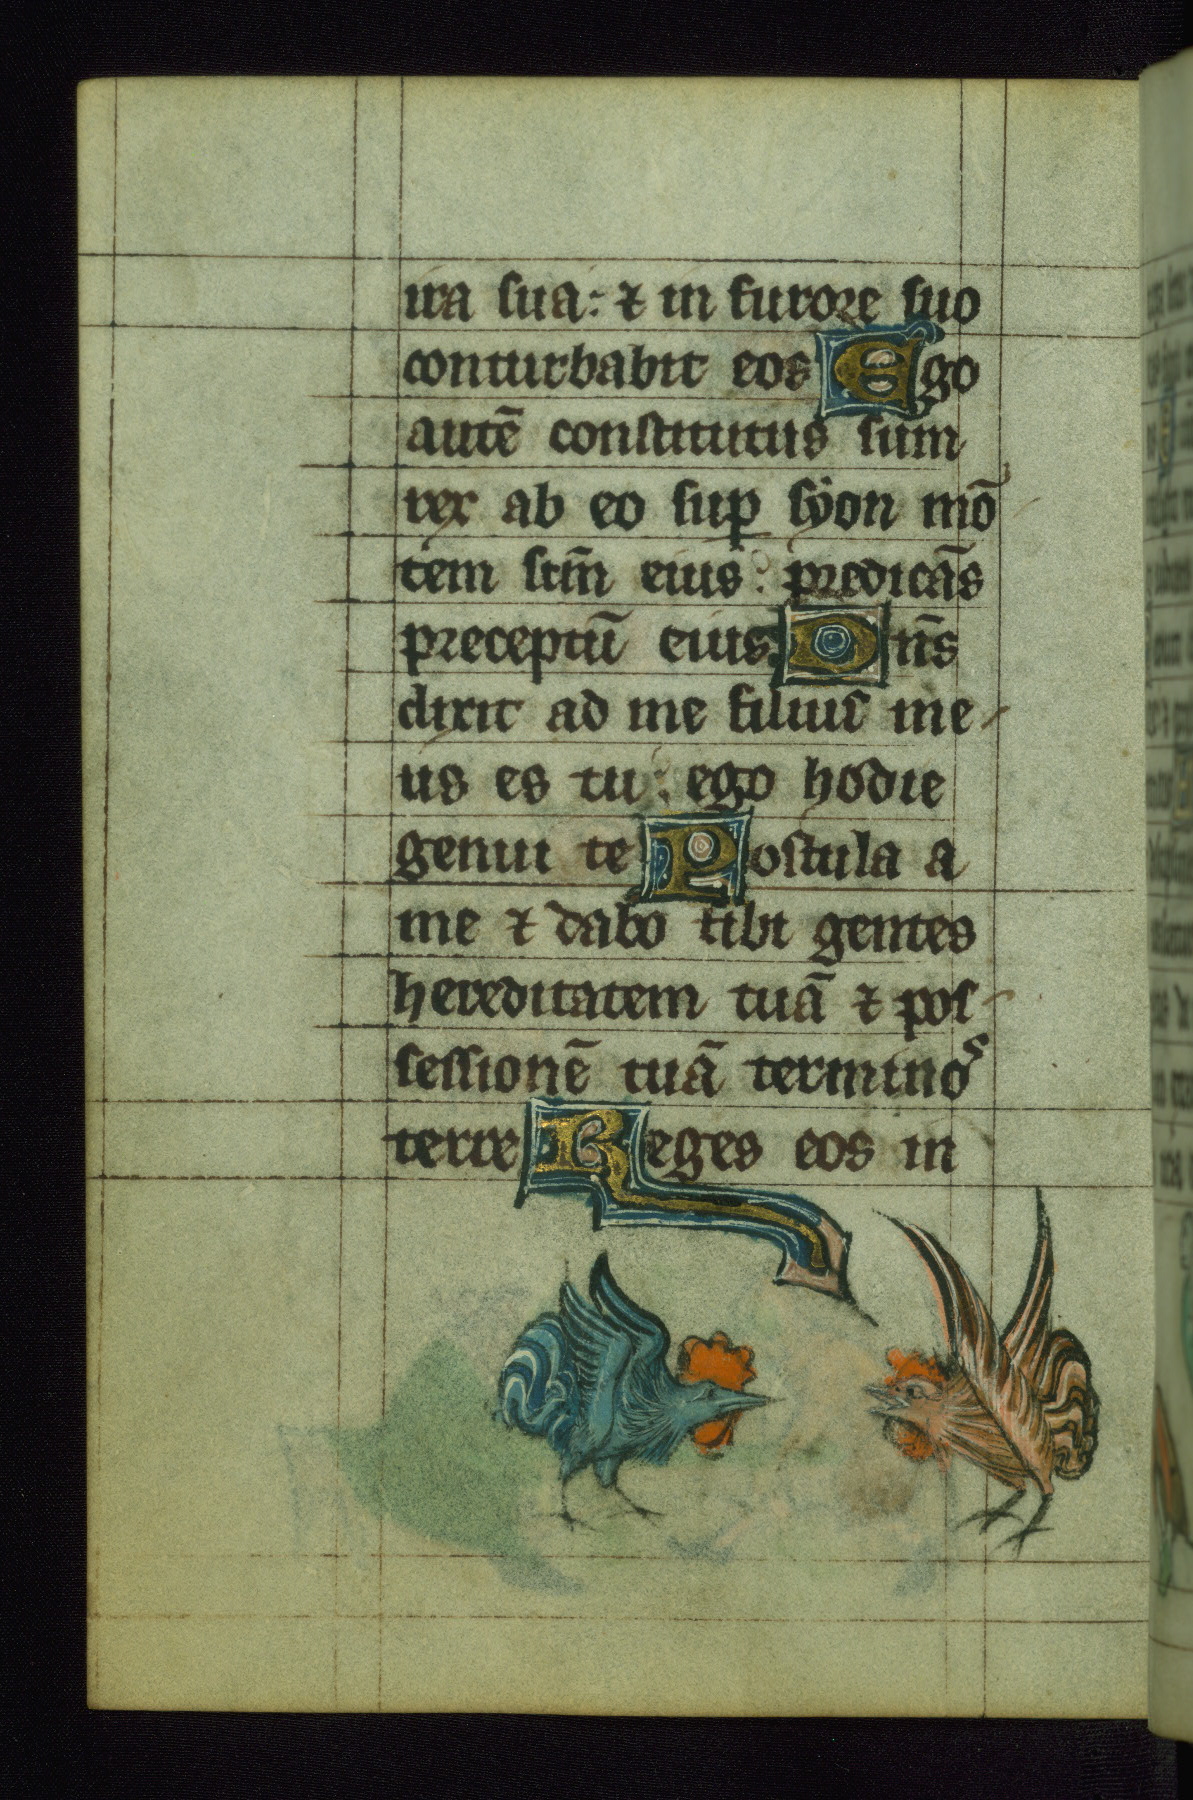 ira sua: ⁊ in furore suo
conturbabit eos Ego
autē constitutus sum
rex ab eo sup syon mō
tem scm̄ eius: predicās
preceptū eius Dn̄s
dixit ad me filius me
us es tu: ego hodie
genui te Postula a
me ⁊ dabo tibi gentes
hereditatem tuā ⁊ pos-
sessionē tuā terminos
terre Reges eos in